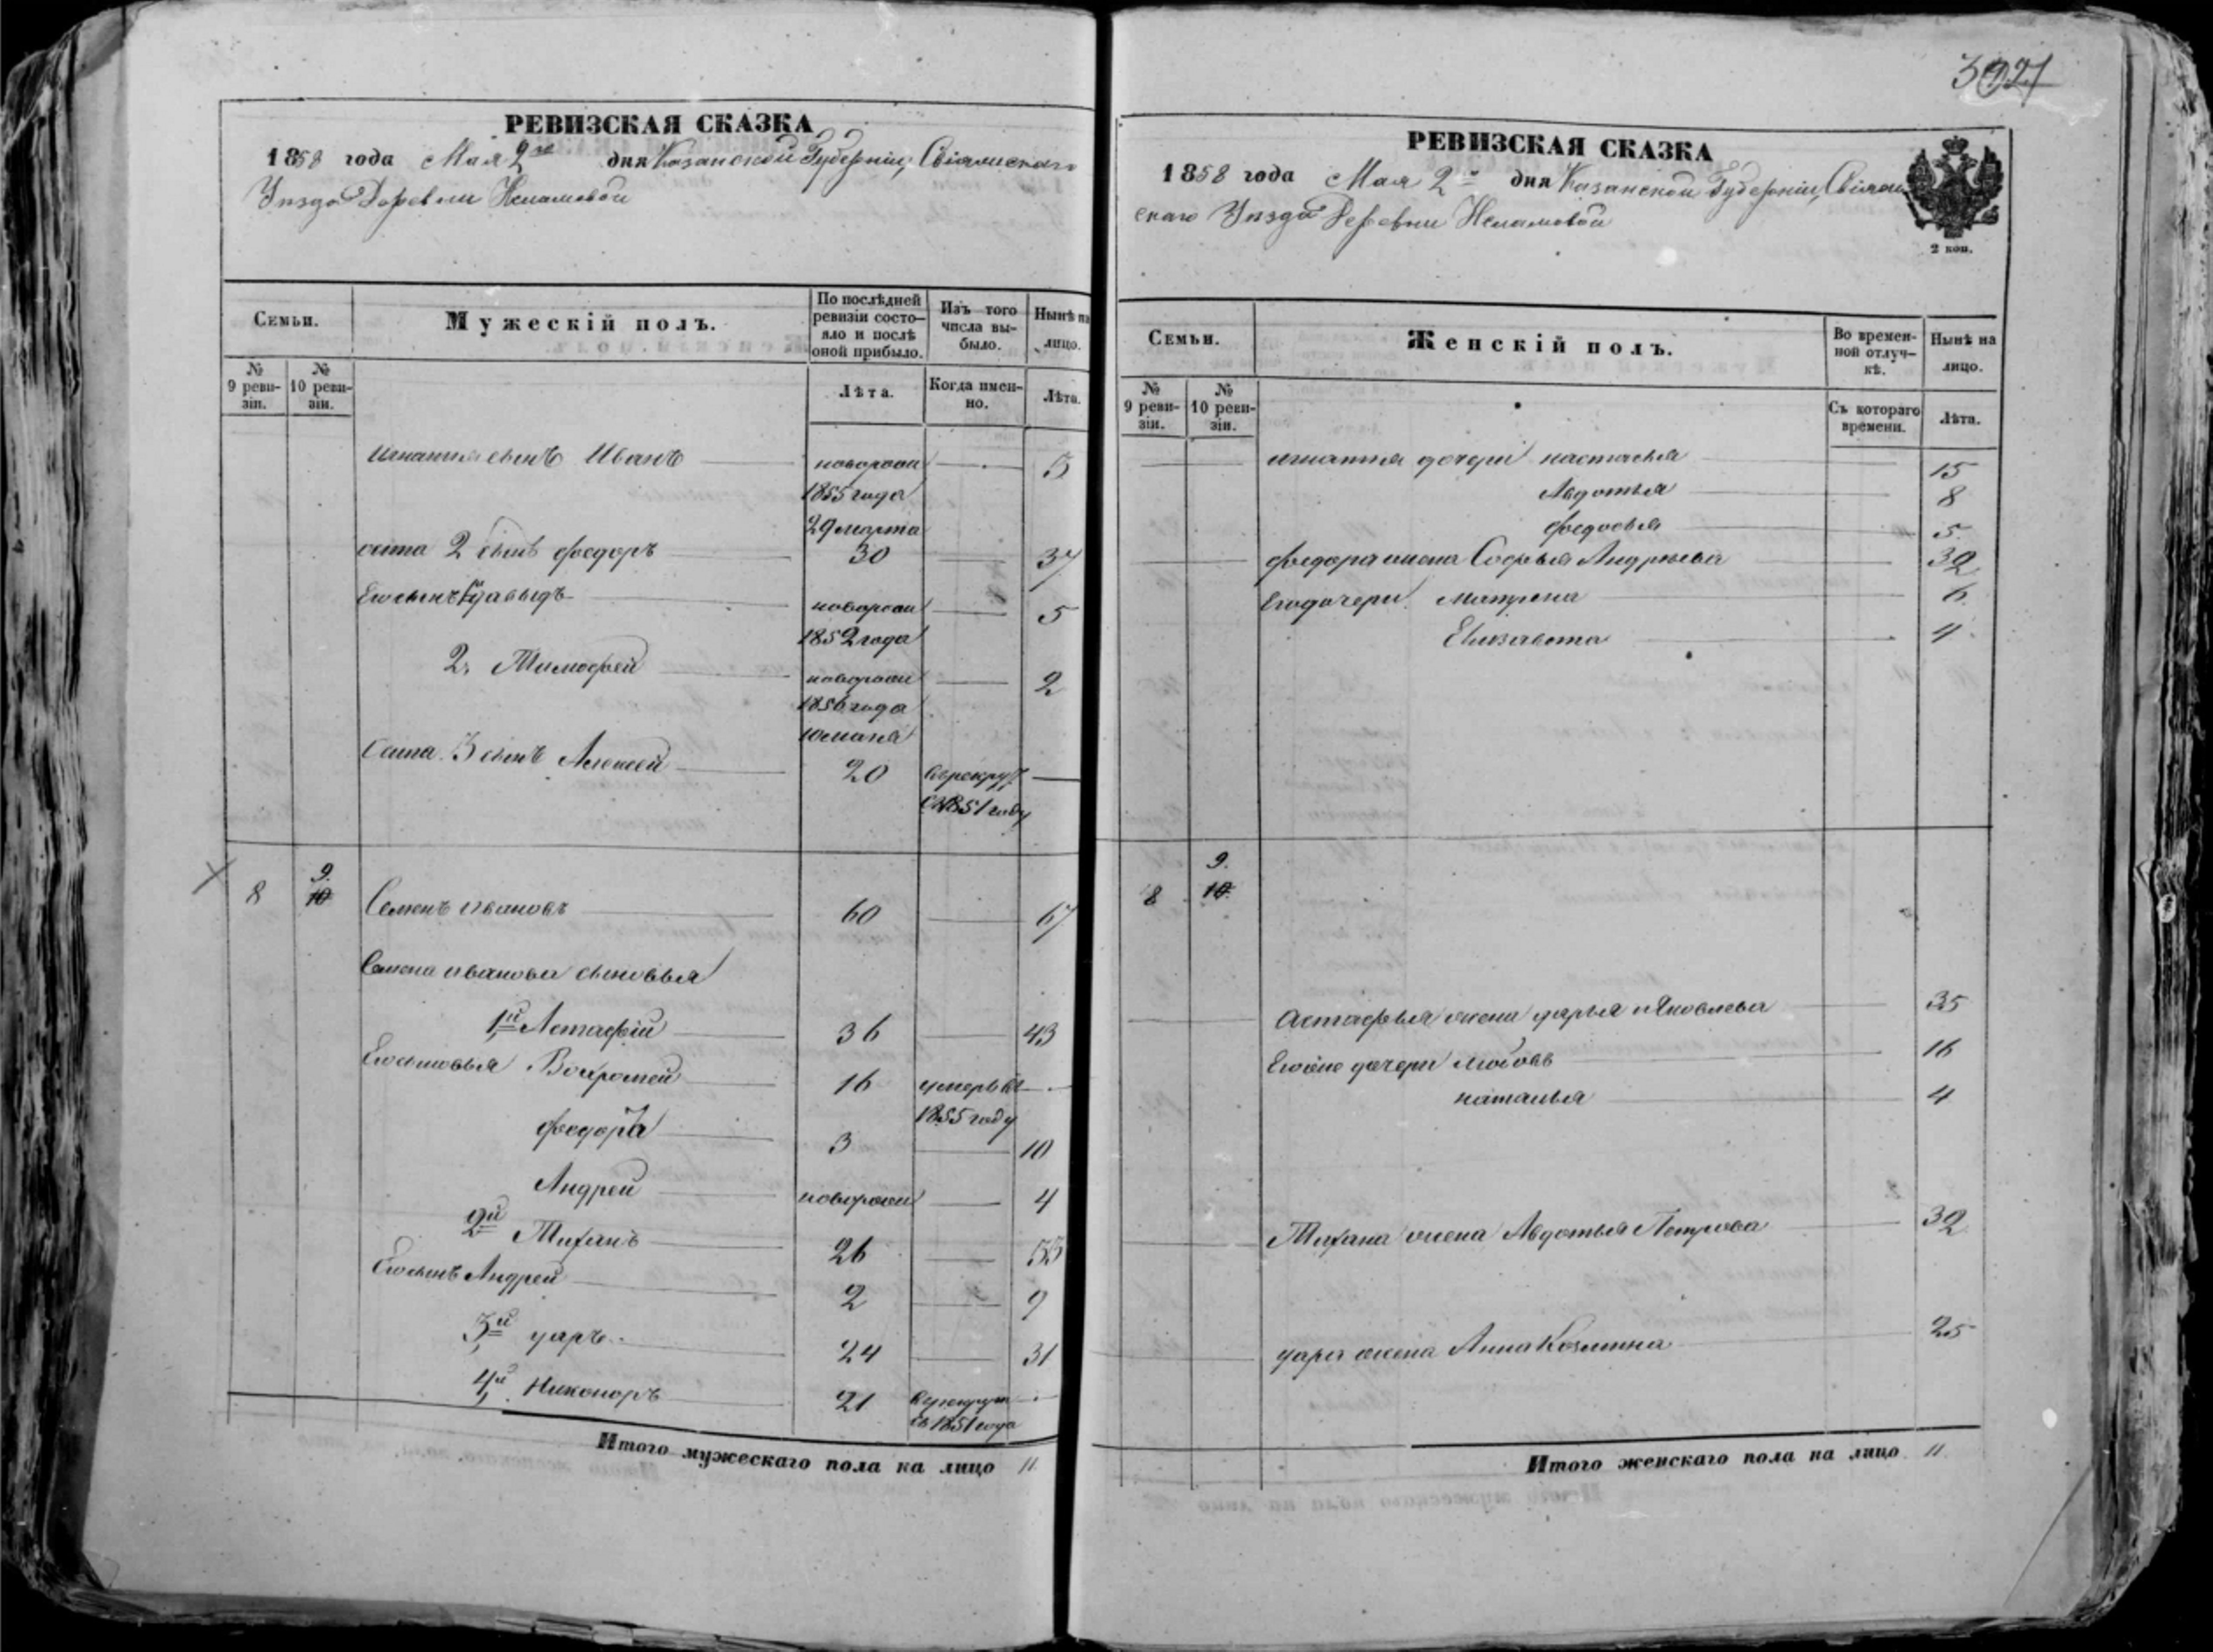 РЕВИЗСКАЯ СКАЗКА
1858 года Мая 2го дня Казанской Губерніи, Свіяжскаго
Уезда Деревни
Семьи.
Мужескій полъ.
По послѣдней ревизіи состо-
яло и послѣ оной прибыло.
Изъ того числа вы-
было.
Нынѣ на лицо.
№ 9 реви-
зіи.
№ 10 реви-
зіи.
Лѣта.
Когда имен-
но.
Лѣта.
игнатья сынъ Иванъ новорож 3
1855 года
29 марта
2 сынъ федоръ 30 37
Его сынъ давыдъ новорож 5
1852 года
2. Тимофей новорож 2
1856 года
3 сынъ Алексей 20 в рекрут
с 1851 году
8 9. 10 Семенъ ивановъ 60 67
Семена иванова сыновья
1й Астафій 36 43
Его сыновья 16 умеръ въ
1855 году
федоръ 3 10
Андрей новорож 4
2й Тиханъ 26 33
Его сынъ Андрей 2 9
3й уаръ 24 31
4й Никоноръ 21 в рекрут
съ 1851 года
Итого мужескаго пола на лицо 11
РЕВИЗСКАЯ СКАЗКА
1858 года Мая 2го дня Казанской Губерніи, Свіяж
скаго Уезда Деревни
2 коп.
Семьи.
Женскій полъ.
Во времен-
ной отлуч-
кѣ.
Нынѣ на лицо.
№ 9 реви-
зіи.
№ 10 реви-
зіи.
Съ котораго времени.
Лѣта.
игнатья дочери настасья 15
Авдотья 8
федосья 5
федора жена Софья Андреева 32
Его дочери Матрена 6
Елизавета 4
8 9. 10.
Астафья жена дарья Яковлева 35
дочери любовь 16
наталья 4
Тихана жена Авдотья Петрова 32
уара жена Анна Козмина 25
Итого женскаго пола на лицо 11.